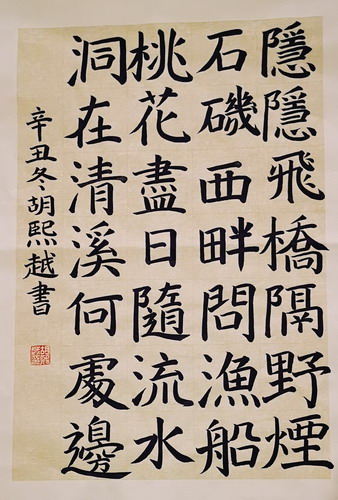 隱隱飛橋隔野煙
石磯西畔問漁船
桃花盡日隨流水
洞在清溪何處邊
辛丑冬胡熙越書